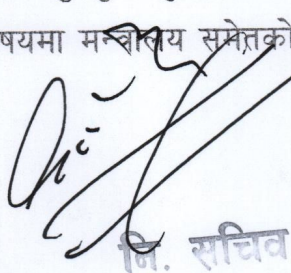 षयमा मन्त्रालय समेतको
नि. सचिव